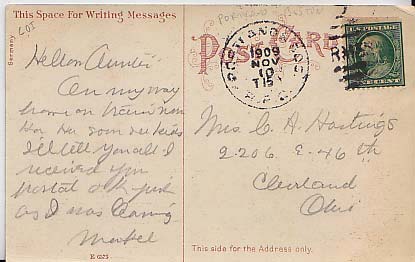 This Space For Writing Messages
Germany
COS
POST CARD
PORTLAND
1909
NOV
10
R.P.O.
U.S. POSTAGE
ONE CENT
Hello Auntie
On my way
home on train now
soon
I'll tell you all I
received your
postal O.K. just
as I was leaving
Mabel
Mrs C. A. Hastings
2206 E-46th
Cleveland
Ohio
This side for the Address only.